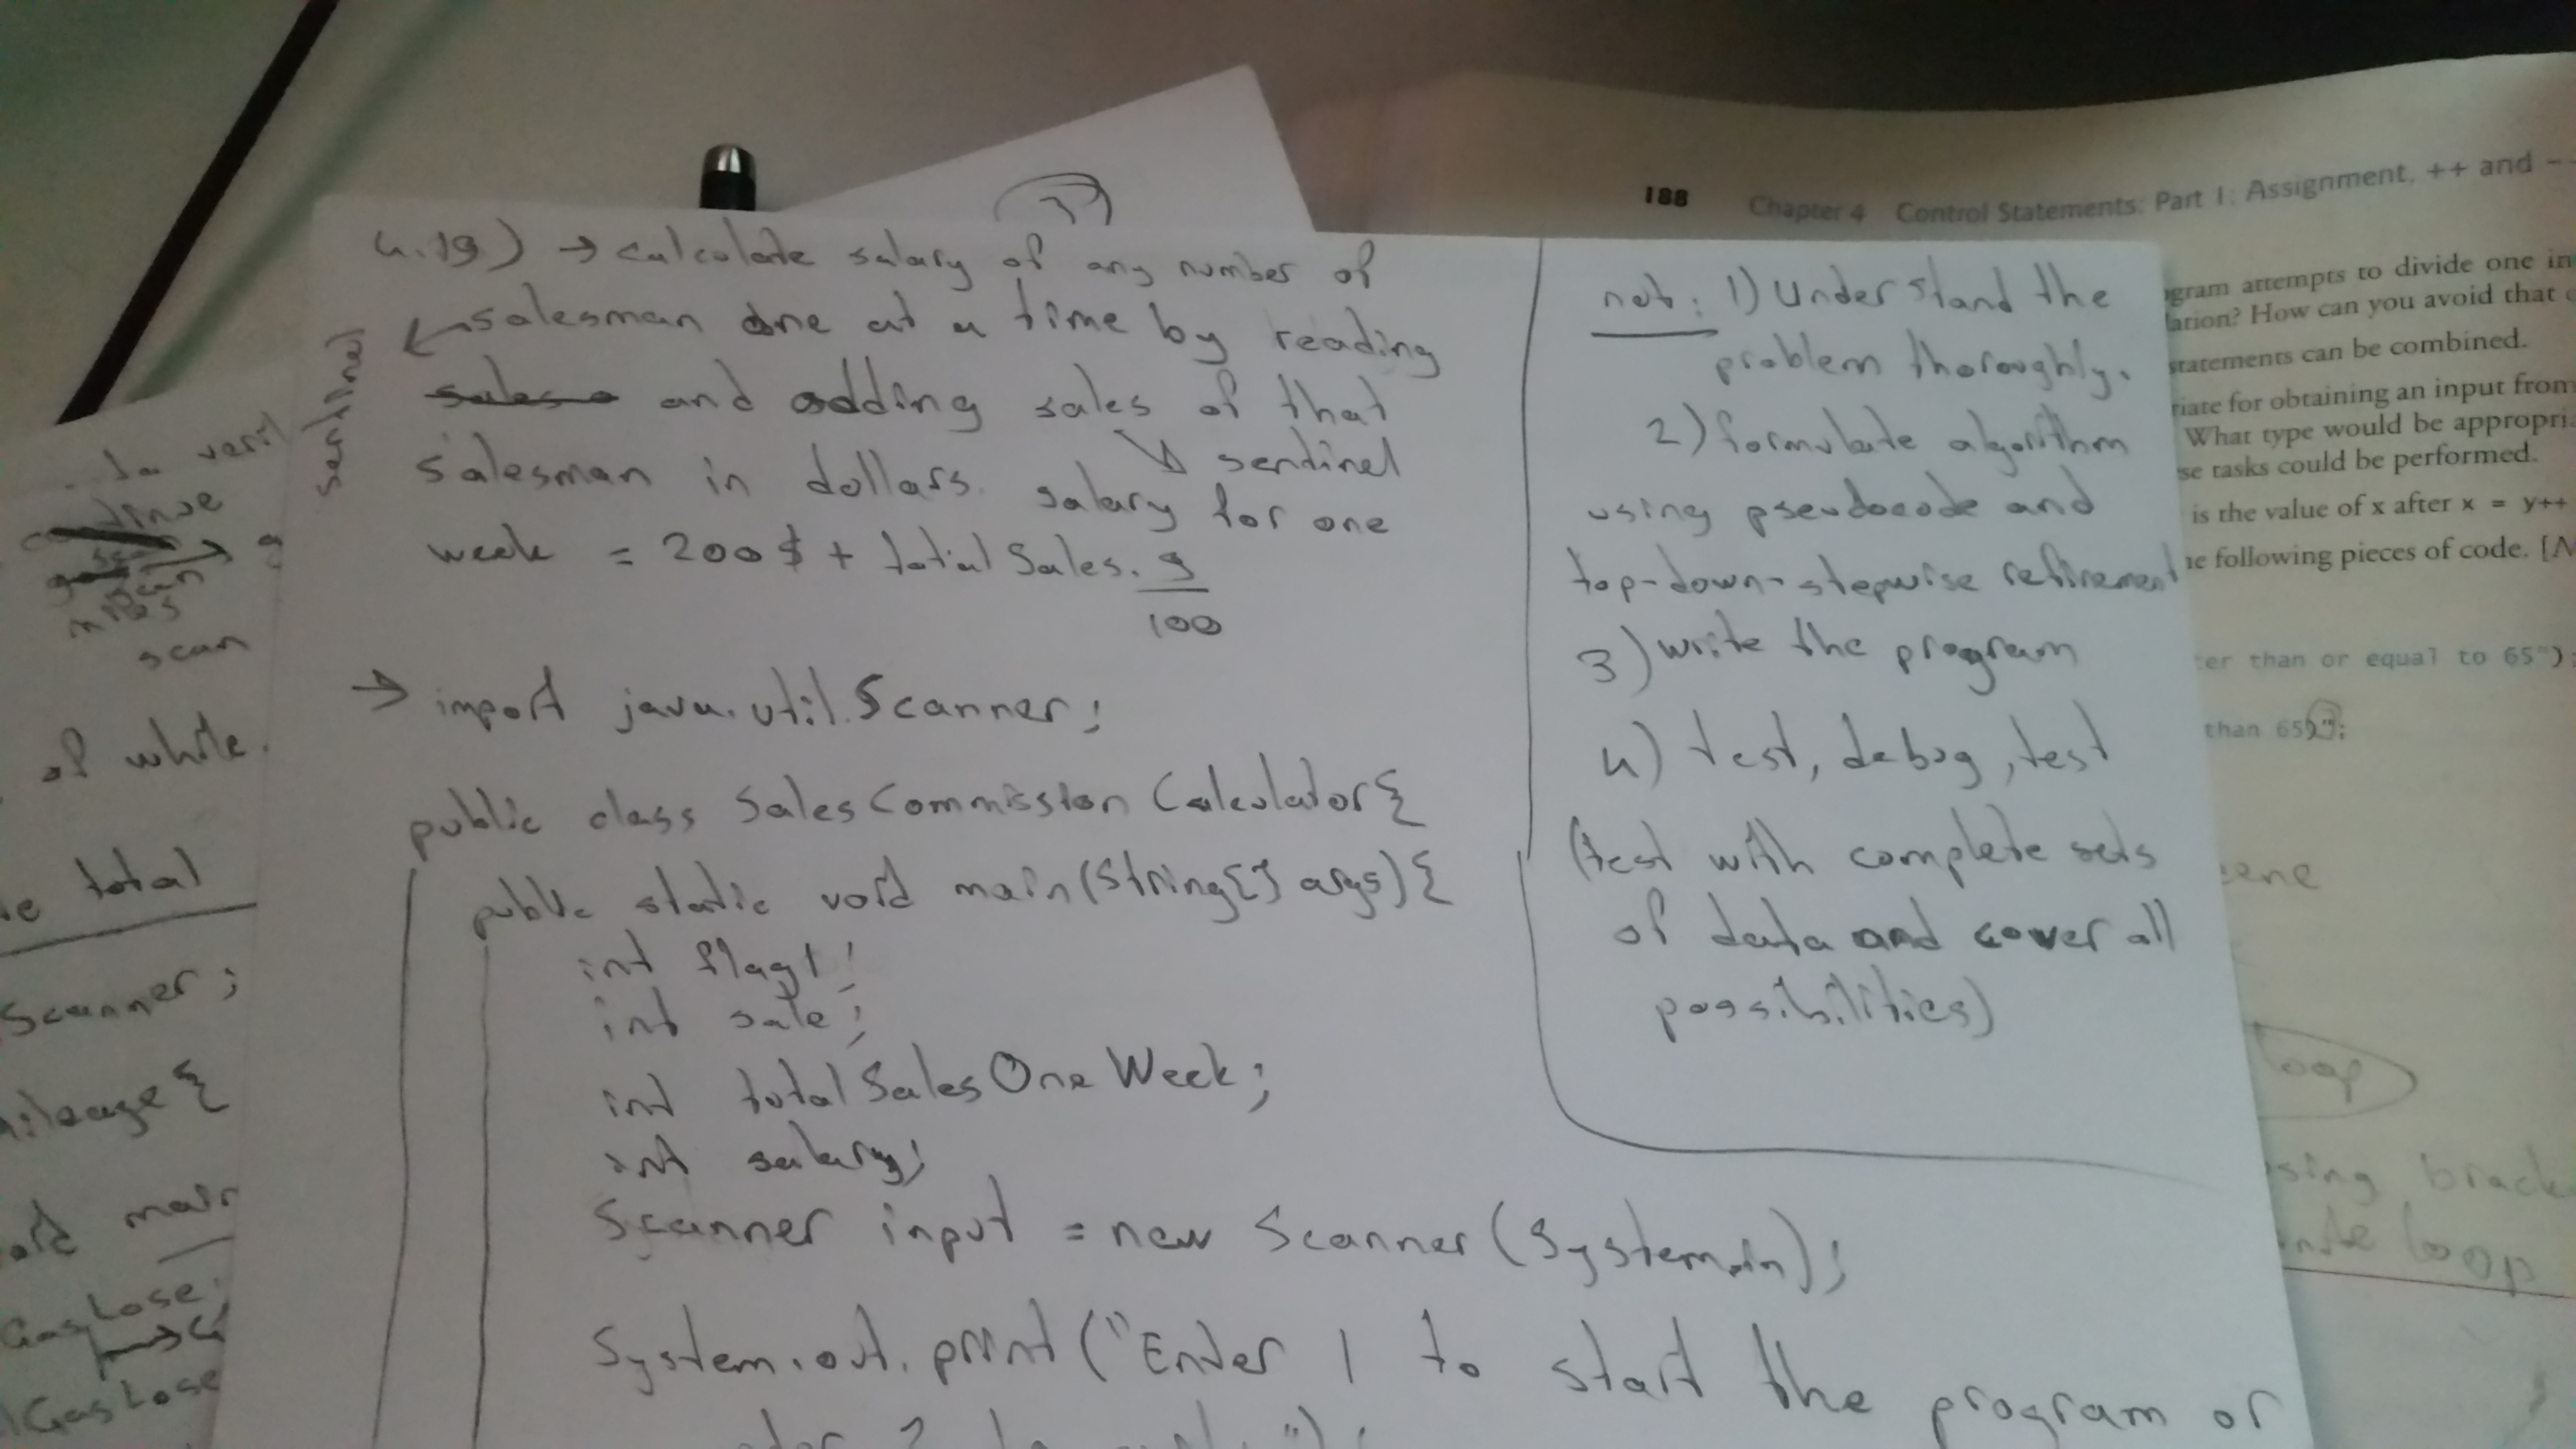 37
4.19) → calculate salary of any number of
salesman one at a time by reading
sales and adding sales of that
sentinel
salesman in dollars. salary for one
week = 200$ + total Sales. 9
100
sentinel
→ import java.util.Scanner;
public class SalesCommissionCalculator{
public static void main(String[] args){
int flag1;
int sale;
int totalSalesOneWeek;
int salary;
Scanner input = new Scanner(System.in);
System.out.print("Enter 1 to start the program or
not: 1) Understand the
problem thoroughly.
2) formulate algorithm
using pseudocode and
top-down-stepwise refinement
3) write the program
4) test, debug, test
(test with complete sets
of data and cover all
possibilities)
scan
of while.
total
Scanner;
ileage {
main
GasLose
GasLose
188 Chapter 4 Control Statements: Part 1; Assignment, ++ and --
gram attempts to divide one in
ation? How can you avoid that
statements can be combined.
riate for obtaining an input from
What type would be appropri
se tasks could be performed.
is the value of x after x = y++
he following pieces of code. [N
ter than or equal to 65");
than 65)";
loop
sing brack
loop